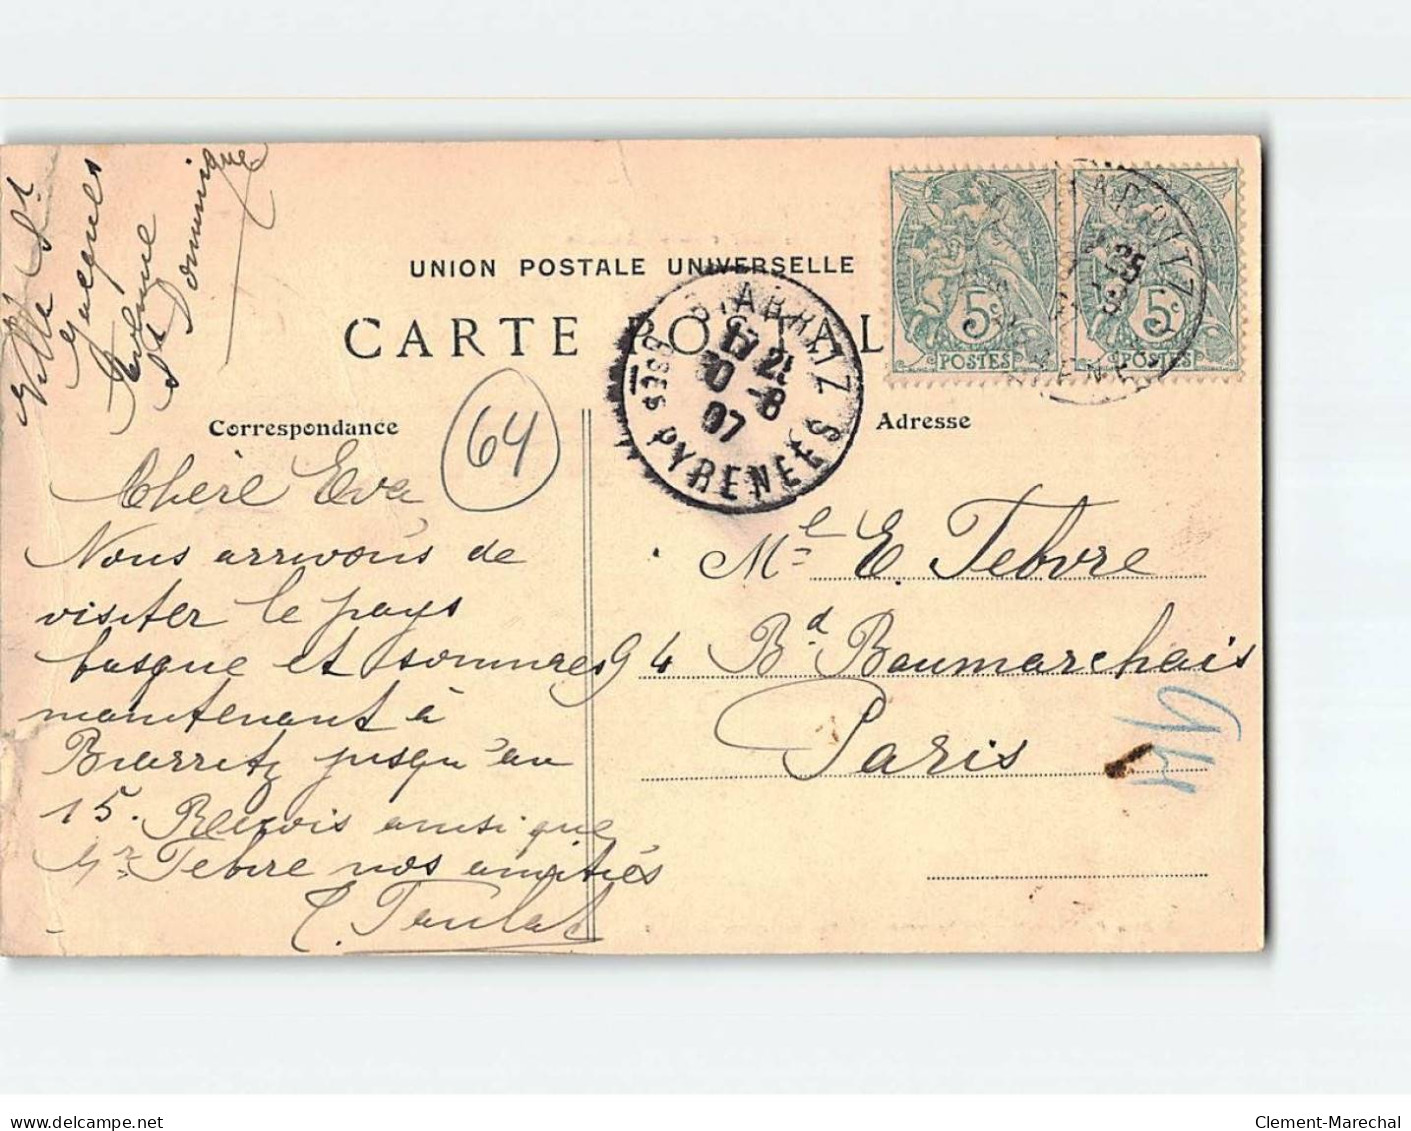 Villa St
Jacques
Avenue
St Dominique
UNION POSTALE UNIVERSELLE
CARTE POSTAL
Correspondance
Adresse
64
BIARRITZ
17 25
30 -8
07
BSES PYRENEES
5c
POSTES
5c
POSTES
BIARRITZ
25
Chère Eva
Nous arrivons de
visiter le pays
basque et sommes
maintenant à
Biarritz jusqu'au
15. Recevois ainsi que
Mr Febvre nos amitiés
Mle E. Febvre
94 Bd Baumarchais
Paris
delcampe.net
Clement-Marechal